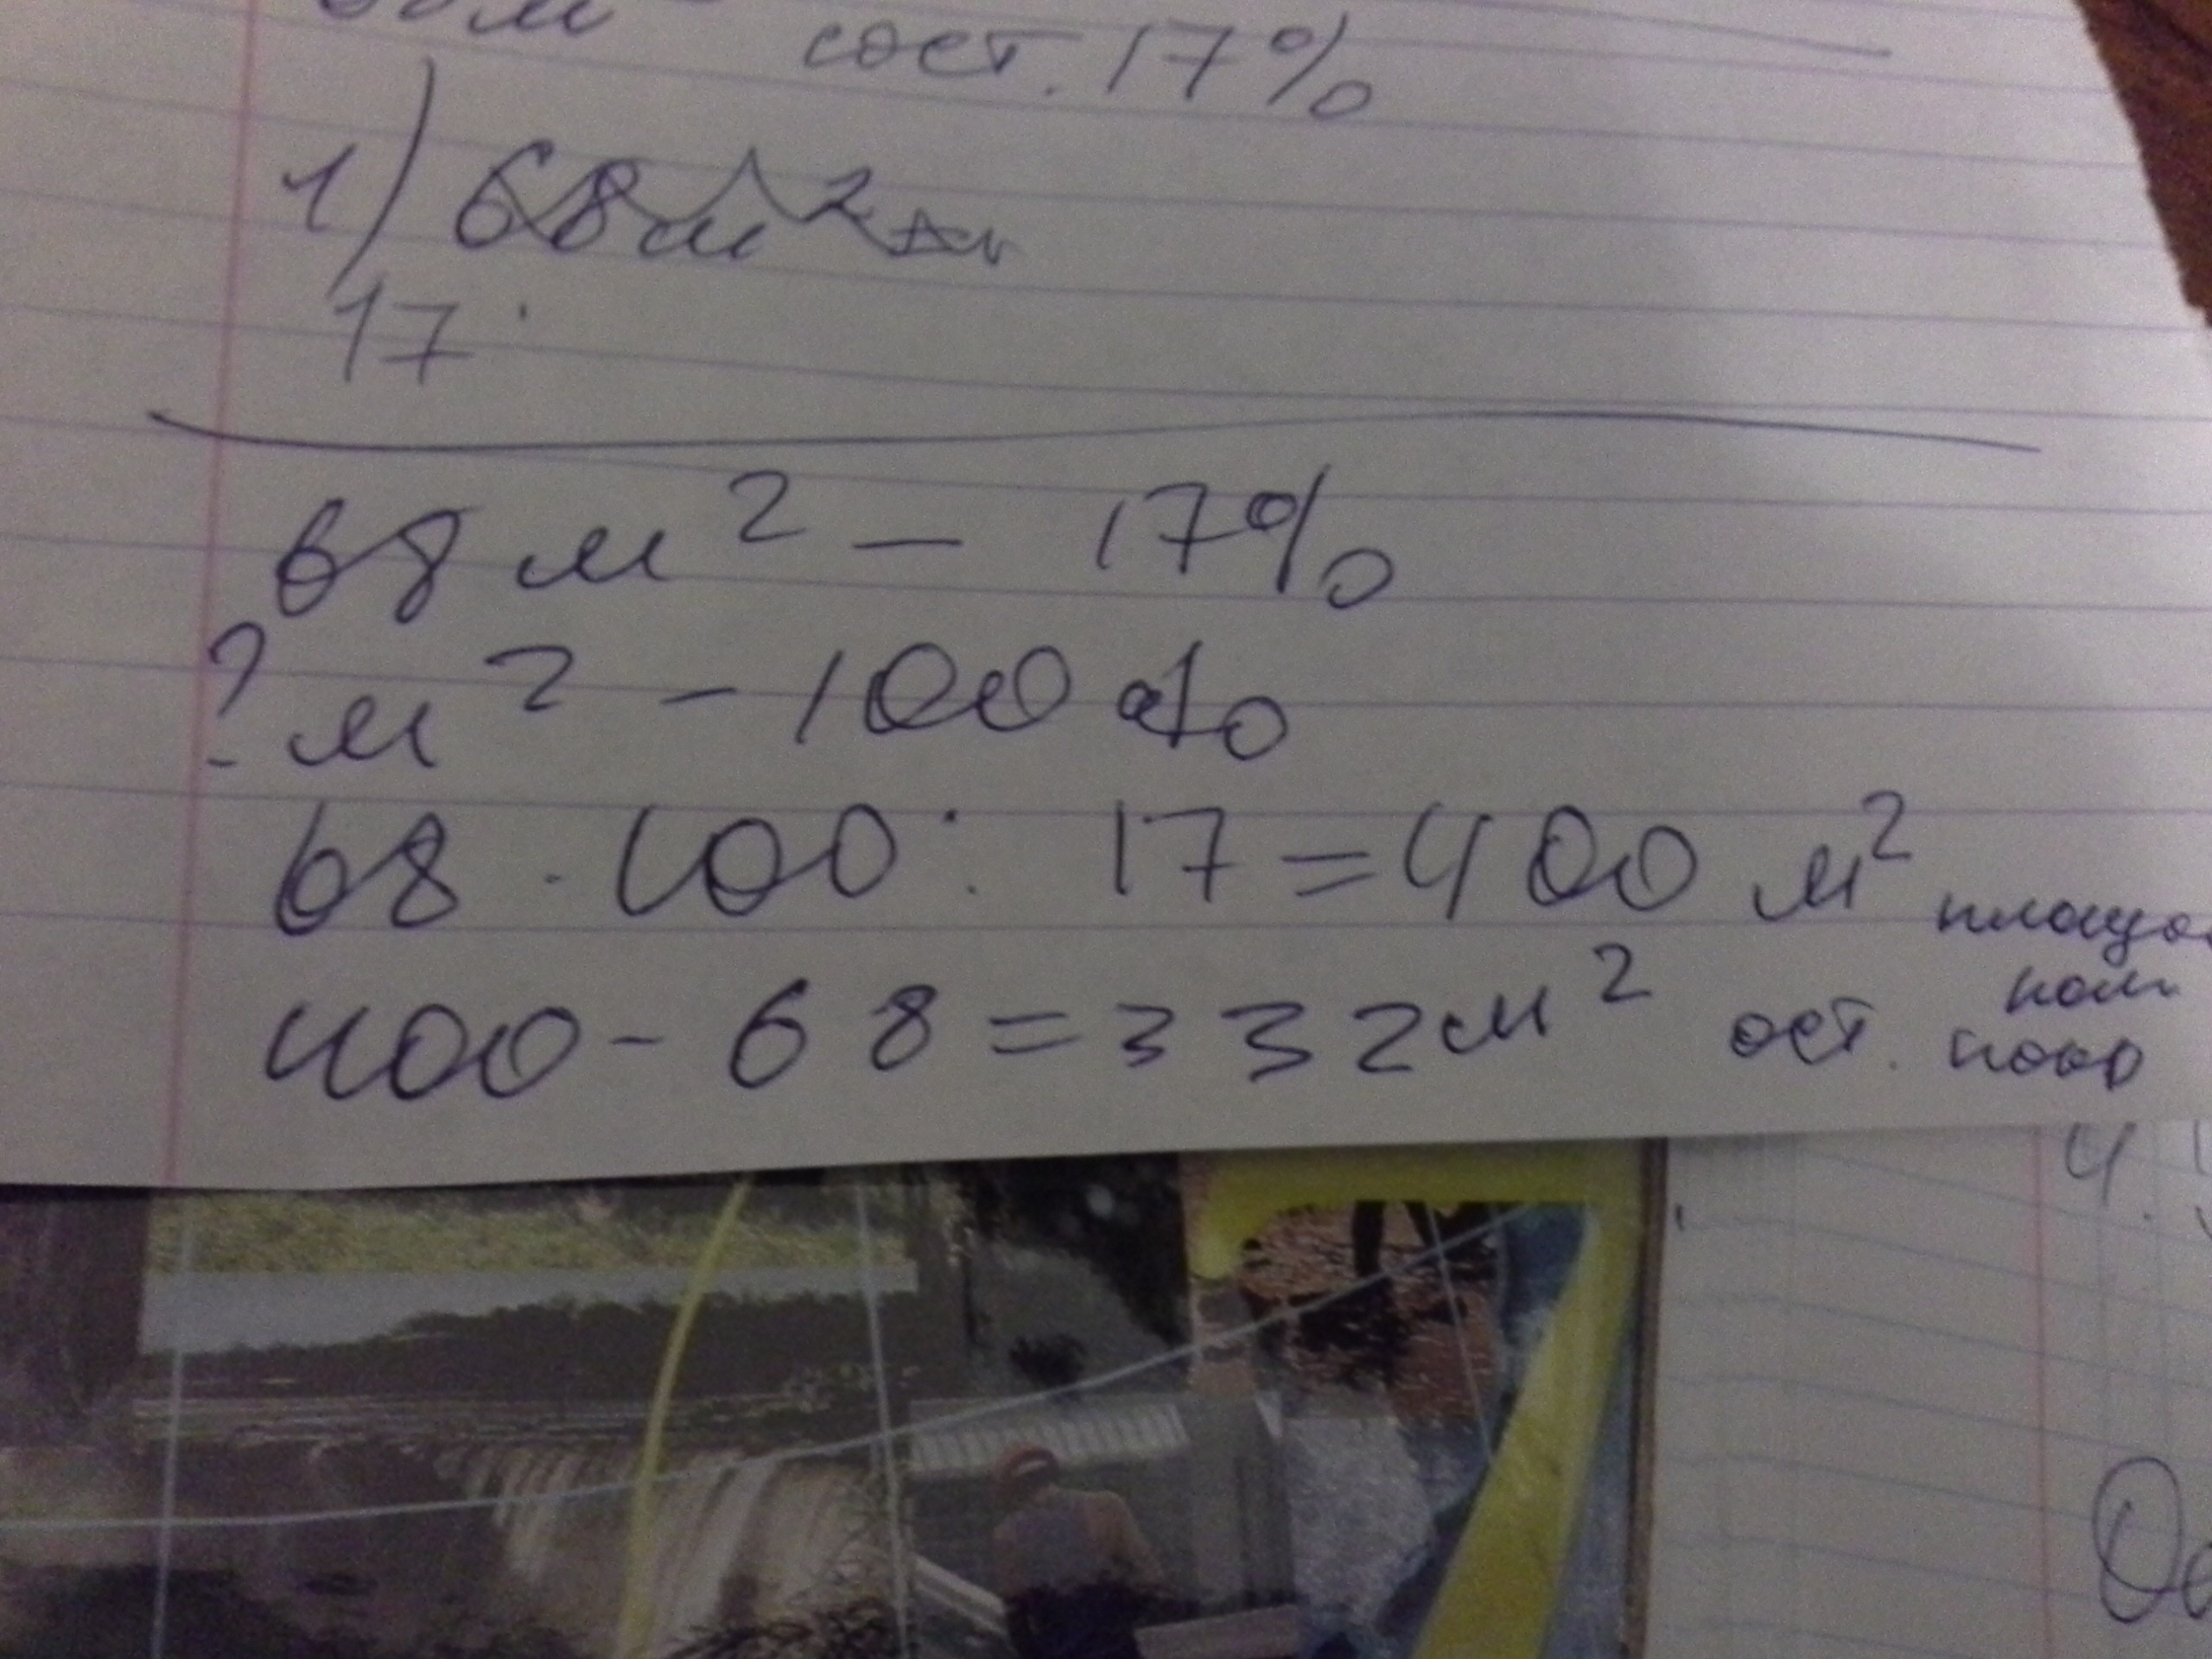 сост. 17%
1) 68м²
17
68 м² – 17%
? м² – 100%
68 · 100 : 17 = 400 м²
400 – 68 = 332 м² ост.